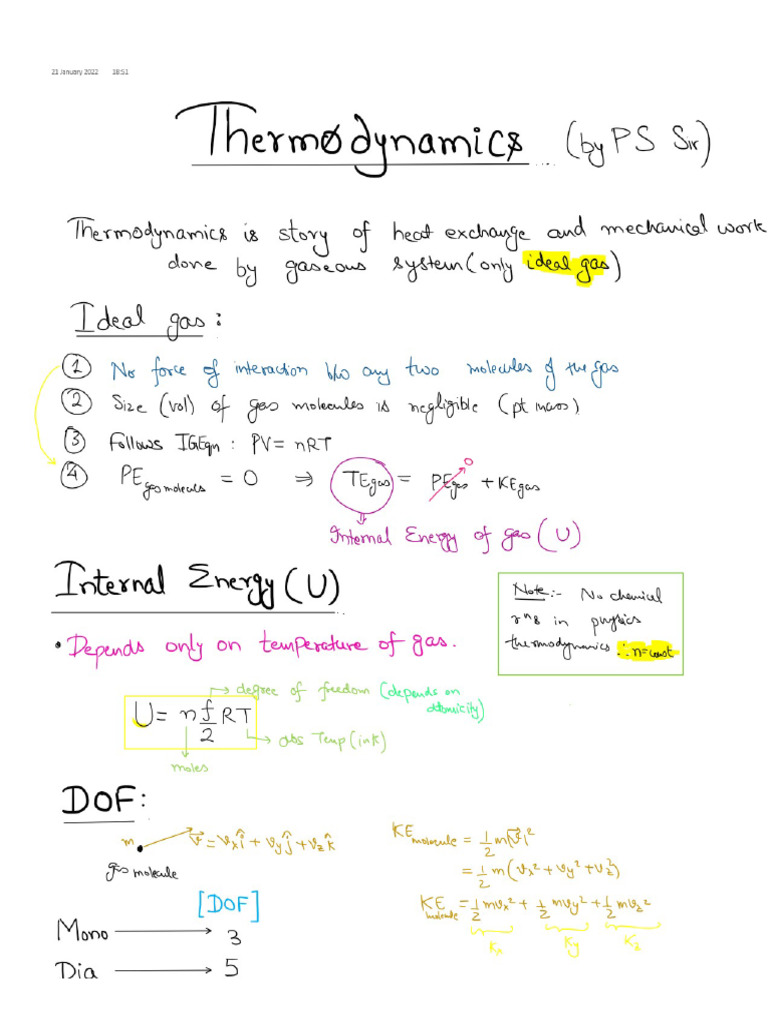 21 January 2022 18:51
Thermodynamics ... (by PS Sir)
Thermodynamics is story of heat exchange and mechanical work
done by gaseous system (only ideal gas)
Ideal gas:
① No force of interaction b/w any two molecules of the gas
② Size (vol) of gas molecules is negligible (pt mass)
③ Follows IGEqn : PV = nRT
④ PE gas molecules = 0 ⇒ TE gas = PE gas + KE gas
0
Internal Energy of gas (U)
Internal Energy (U)
Note :- No chemical
rxns in physics
thermodynamics ∴ n=const
• Depends only on temperature of gas.
→ degree of freedom (depends on
atomicity)
U = n f/2 RT
→ abs Temp (in K)
moles
DOF:
m v⃗ = vₓî + vᵧĵ + v_z k̂
gas molecule
KE molecule = 1/2 m|v⃗|²
= 1/2 m(vₓ² + vᵧ² + v_z²)
KE molecule = 1/2 mvₓ² + 1/2 mvᵧ² + 1/2 mv_z²
Kₓ Kᵧ K_z
[DOF]
Mono → 3
Dia → 5